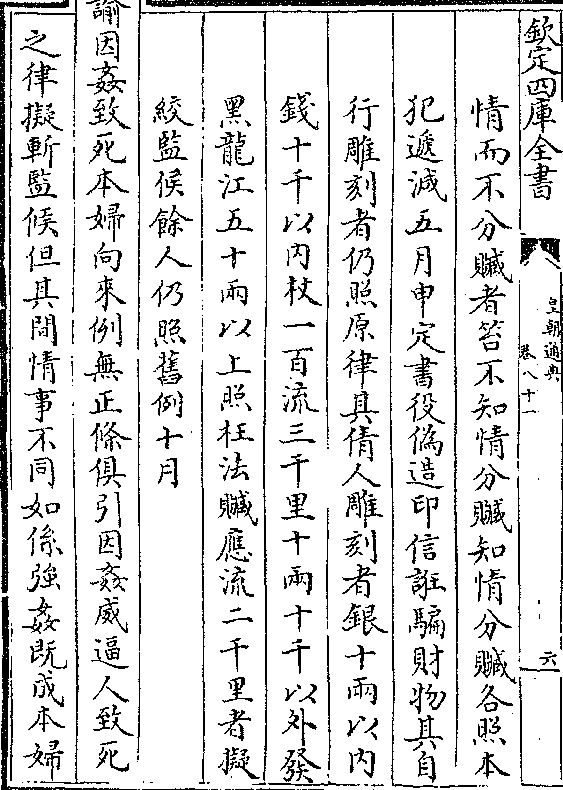 欽定四庫全書
皇朝通典
卷八十一
六
情而不分贓者笞不知情分贓知情分贓各照本
犯遞減五月申定書役偽造印信誆騙財物其自
行雕刻者仍照原律其倩人雕刻者銀十兩以內
錢十千以內杖一百流三千里十兩十千以外發
黑龍江五十兩以上照枉法贓應流二千里者擬
絞監候餘人仍照舊例十月
諭因姦致死本婦向來例無正條俱引因姦威逼人致死
之律擬斬監候但其間情事不同如係強姦既成本婦